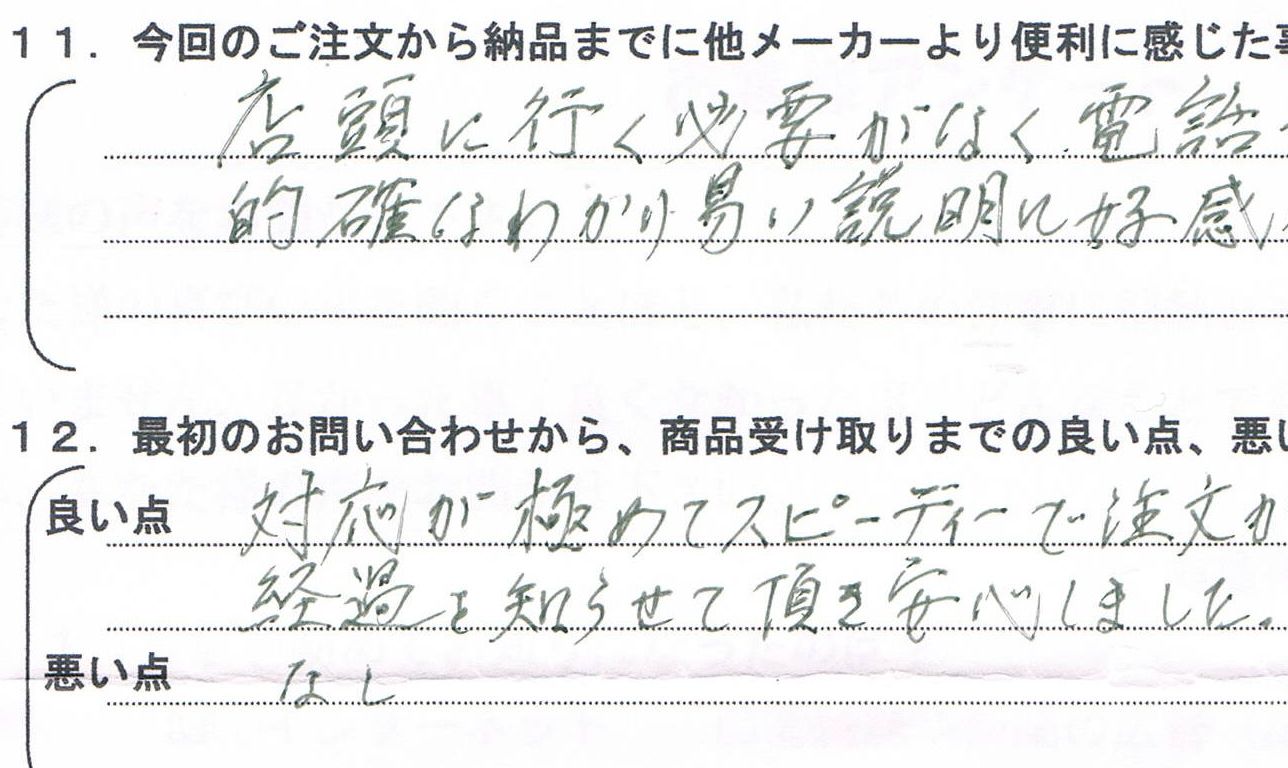 11．今回のご注文から納品までに他メーカーより便利に感じた事
店頭に行く必要がなく電話
的確なわかり易い説明に好感
12．最初のお問い合わせから、商品受け取りまでの良い点、悪い
良い点 対応が極めてスピーディーで注文か
経過を知らせて頂き安心しました。
悪い点 なし